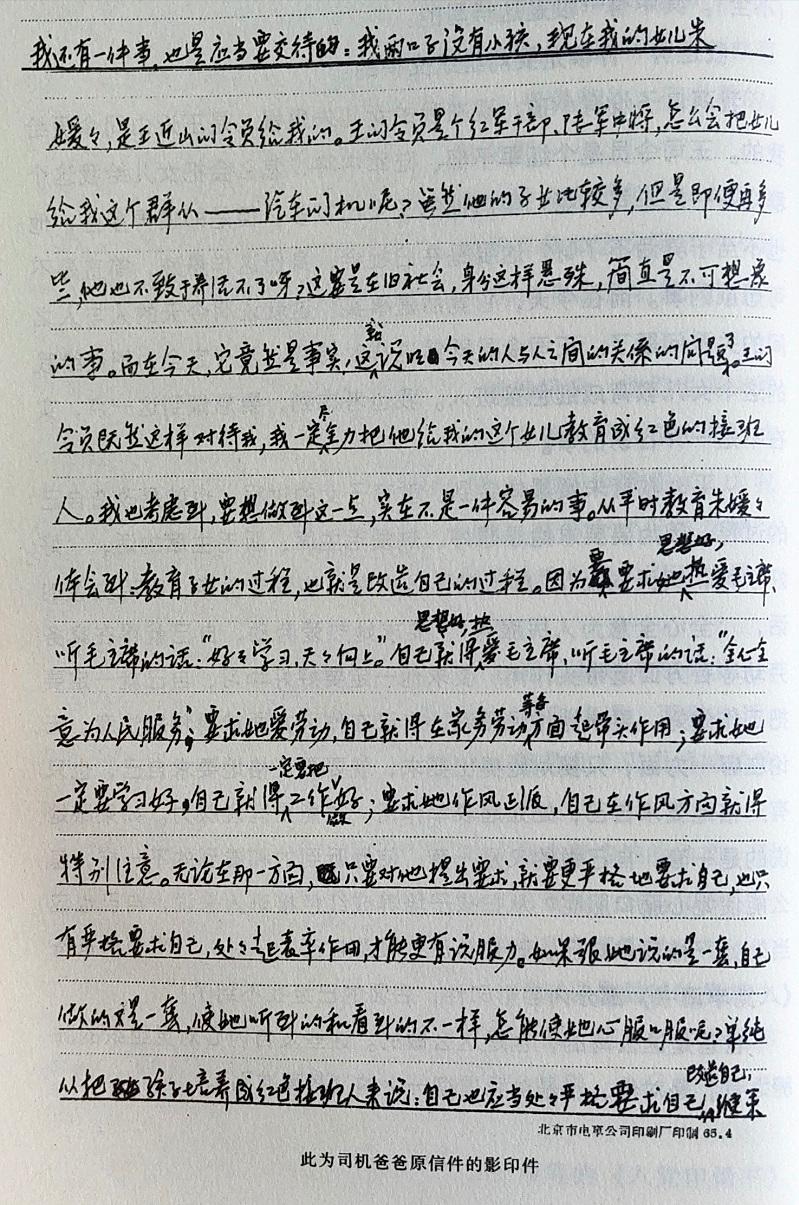 我还有一件事,也是应当要交待的:我两口子没有小孩,现在我的女儿朱
媛々,是王近山司令员给我的。王司令员是个红军干部、陆军中将,怎么会把女儿
给我这个群众——汽车司机呢?虽然他的子女比较多,但是即便再多
些,他也不致于养活不了呀?这要是在旧社会,身分这样悬殊,简直是不可想象
的事。而在今天,它竟然是事实,这就说明今天的人与人之间的关系的问题了。王司
令员既然这样对待我,我一定尽全力把他给我的这个女儿教育成红色的接班
人。我也考虑到,要想做到这一点,实在不是一件容易的事。从平时教育朱媛々
体会到:教育子女的过程,也就是改造自己的过程。因为要求她思想好,热爱毛主席、
听毛主席的话:“好々学习,天々向上。”自己就得思想好,热爱毛主席、听毛主席的话:“全心全
意为人民服务”;要求她爱劳动,自己就得在家务劳动等各方面起带头作用;要求她
一定要学习好,自己就得一定要把工作做好;要求她作风正派,自己在作风方面就得
特别注意。无论在那一方面,只要对她提出要求,就要更严格地要求自己,也只
有严格要求自己,处々起表率作用,才能更有说服力。如果跟她说的是一套,自己
做的又是一套,使她听到的和看到的不一样,怎能使她心服口服呢?单纯
从把孩子培养成红色接班人来说:自己也应当处々严格要求自己,改造自己,继来
北京市电车公司印刷厂印制 65.4
此为司机爸爸原信件的影印件